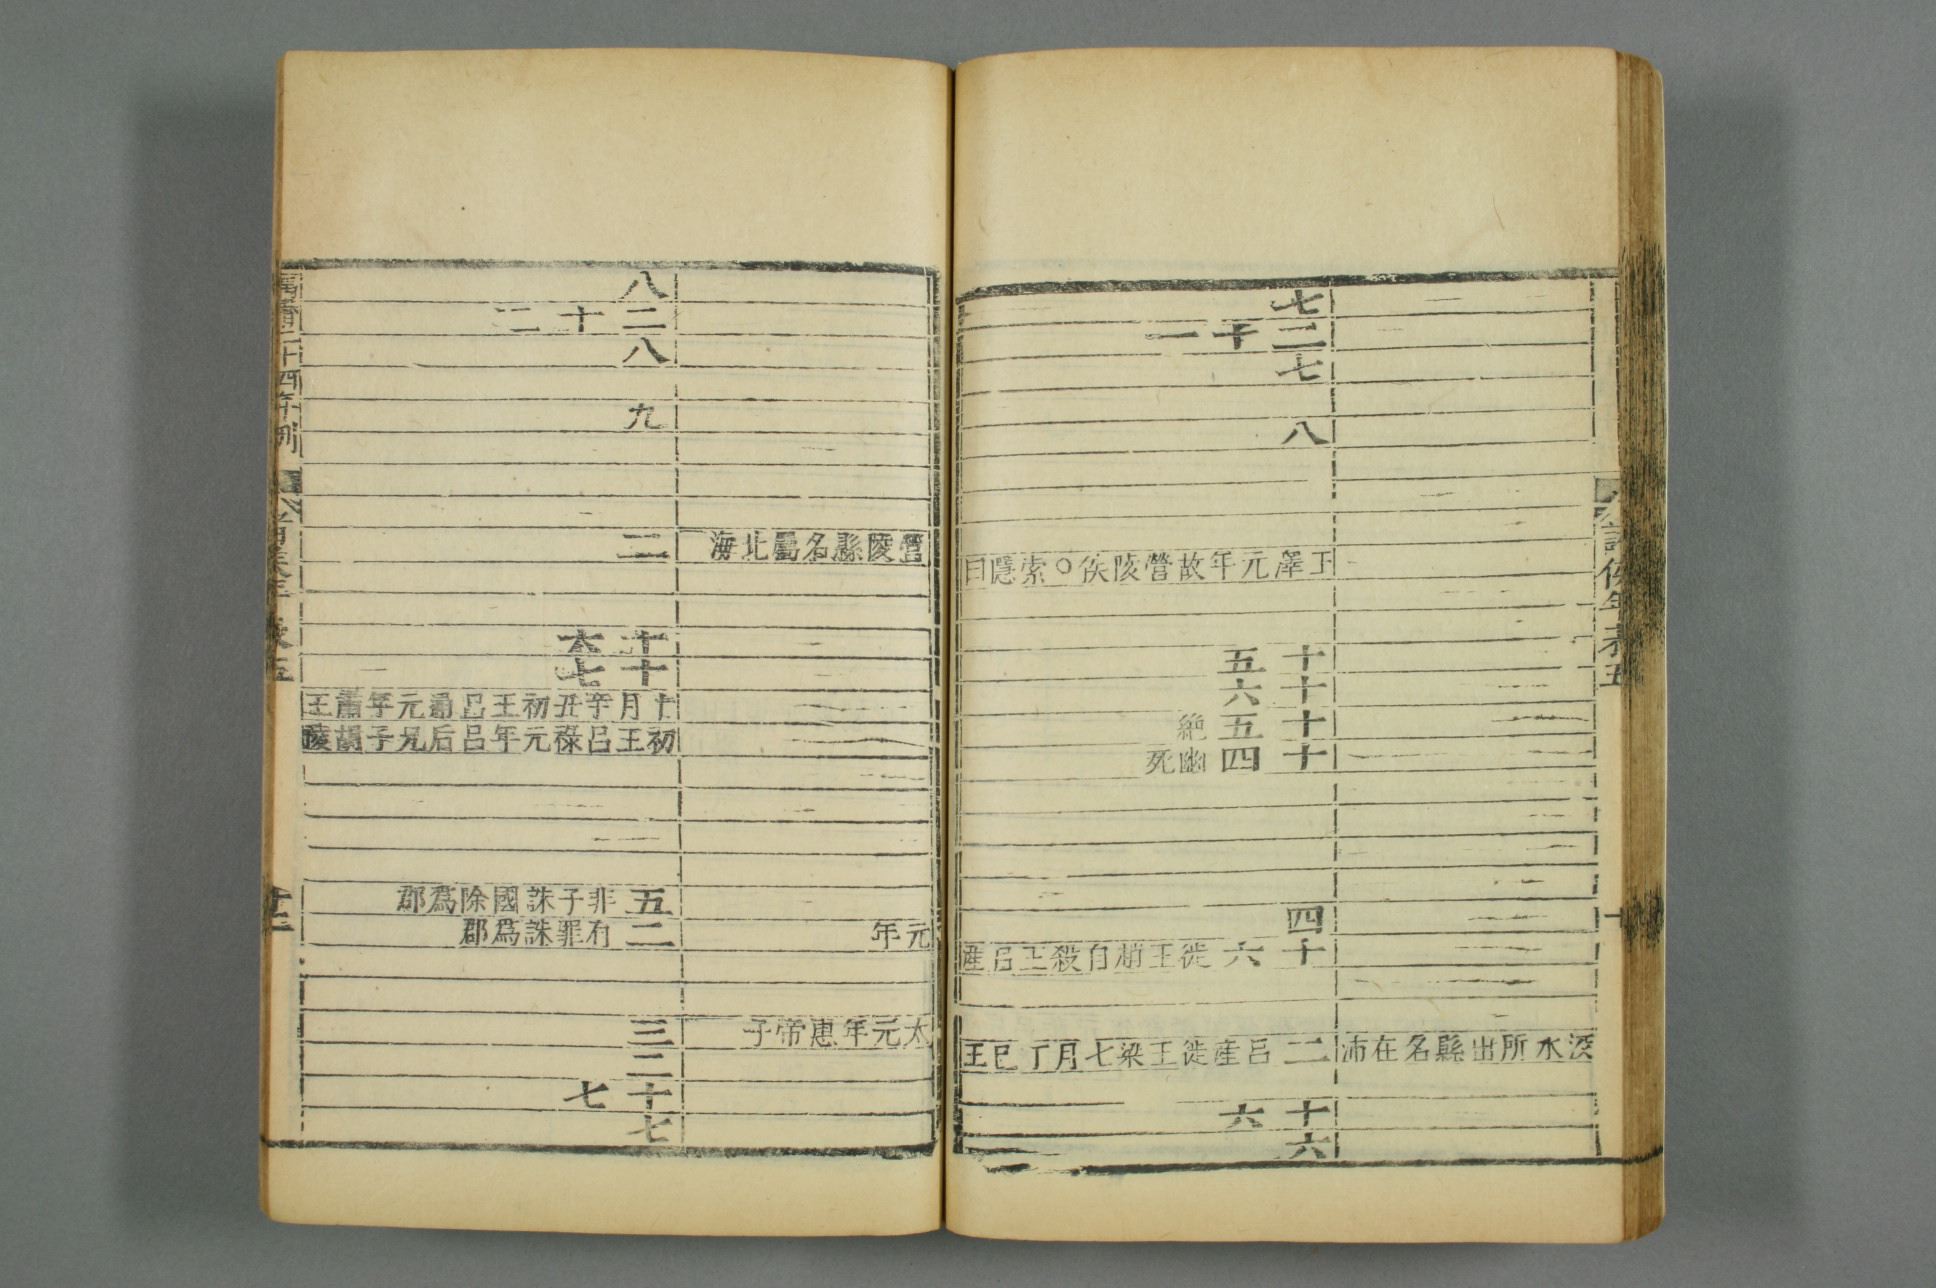 洨水所出縣名在沛
七
二十一
七
八
王澤元年故營陵侯○索隱曰
十五
十六
十五絶
十四幽死
四
十六徙王趙自殺王呂產
二呂產徙王梁七月丁巳王
十六
六
營陵縣名屬北海
元年
太元年惠帝子
八
二十二
八
九
二
十六
十七
十月辛丑初王呂通元年肅王
初王呂祿元年呂后兄子胡陵
五非子誅國除爲郡
二有罪誅爲郡
三
二
十七
七
萬曆二十四年刊